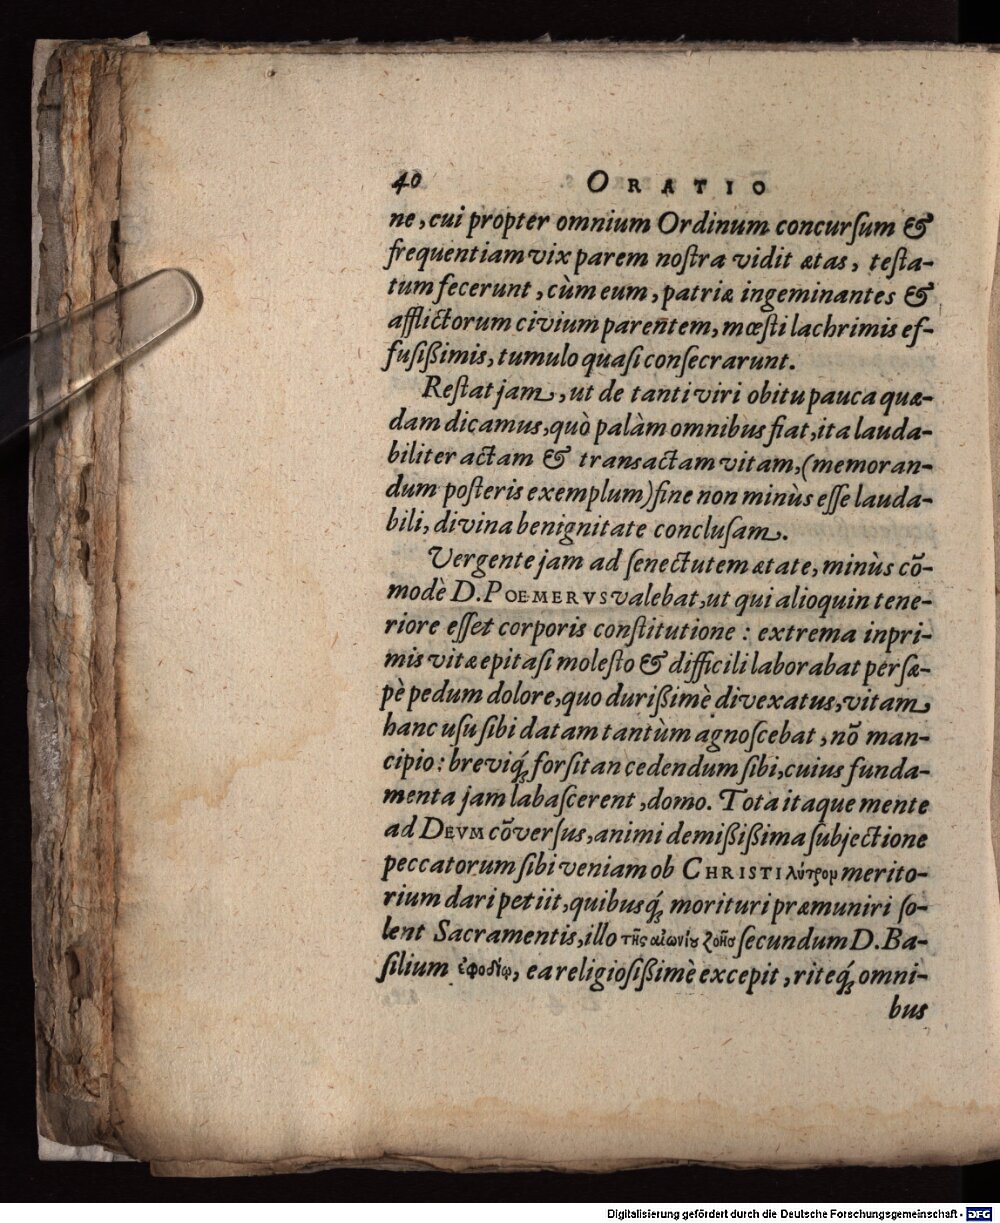 40 ORATIO
ne, cui propter omnium Ordinum concurſum &
frequentiam vix parem noſtra vidit ætas, teſta-
tum fecerunt, cùm eum, patriæ ingeminantes &
afflictorum civium parentem, mœſti lachrimis ef-
fuſißimis, tumulo quaſi conſecrarunt.
Reſtat jam, ut de tanti viri obitu pauca quæ-
dam dicamus, quò palàm omnibus fiat, ita lauda-
biliter actam & transactam vitam, (memoran-
dum poſteris exemplum) fine non minùs eſſe lauda-
bili, divina benignitate concluſam.
Vergente jam ad ſenectutem ætate, minùs cõ-
modè D. POEMERVS valebat, ut qui alioquin tene-
riore eſſet corporis conſtitutione : extrema inpri-
mis vitæ epitaſi moleſto & difficili laborabat perſæ-
pè pedum dolore, quo durißimè divexatus, vitam
hanc uſu ſibi datam tantùm agnoſcebat, nõ man-
cipio : breviq́ꝫ forſitan cedendum ſibi, cuius funda-
menta jam labaſcerent, domo. Tota itaque mente
ad DEVM cõverſus, animi demißißima ſubjectione
peccatorum ſibi veniam ob CHRISTI λύτρον merito-
rium dari petiit, quibusq́ꝫ morituri præmuniri ſo-
lent Sacramentis, illo τῆς αἰωνίȣ ζοῆς ſecundum D. Ba-
ſilium ἐφοδίῳ, ea religioſißimè excepit, riteq́ꝫ omni-
bus
Digitalisierung gefördert durch die Deutsche Forschungsgemeinschaft - DFG